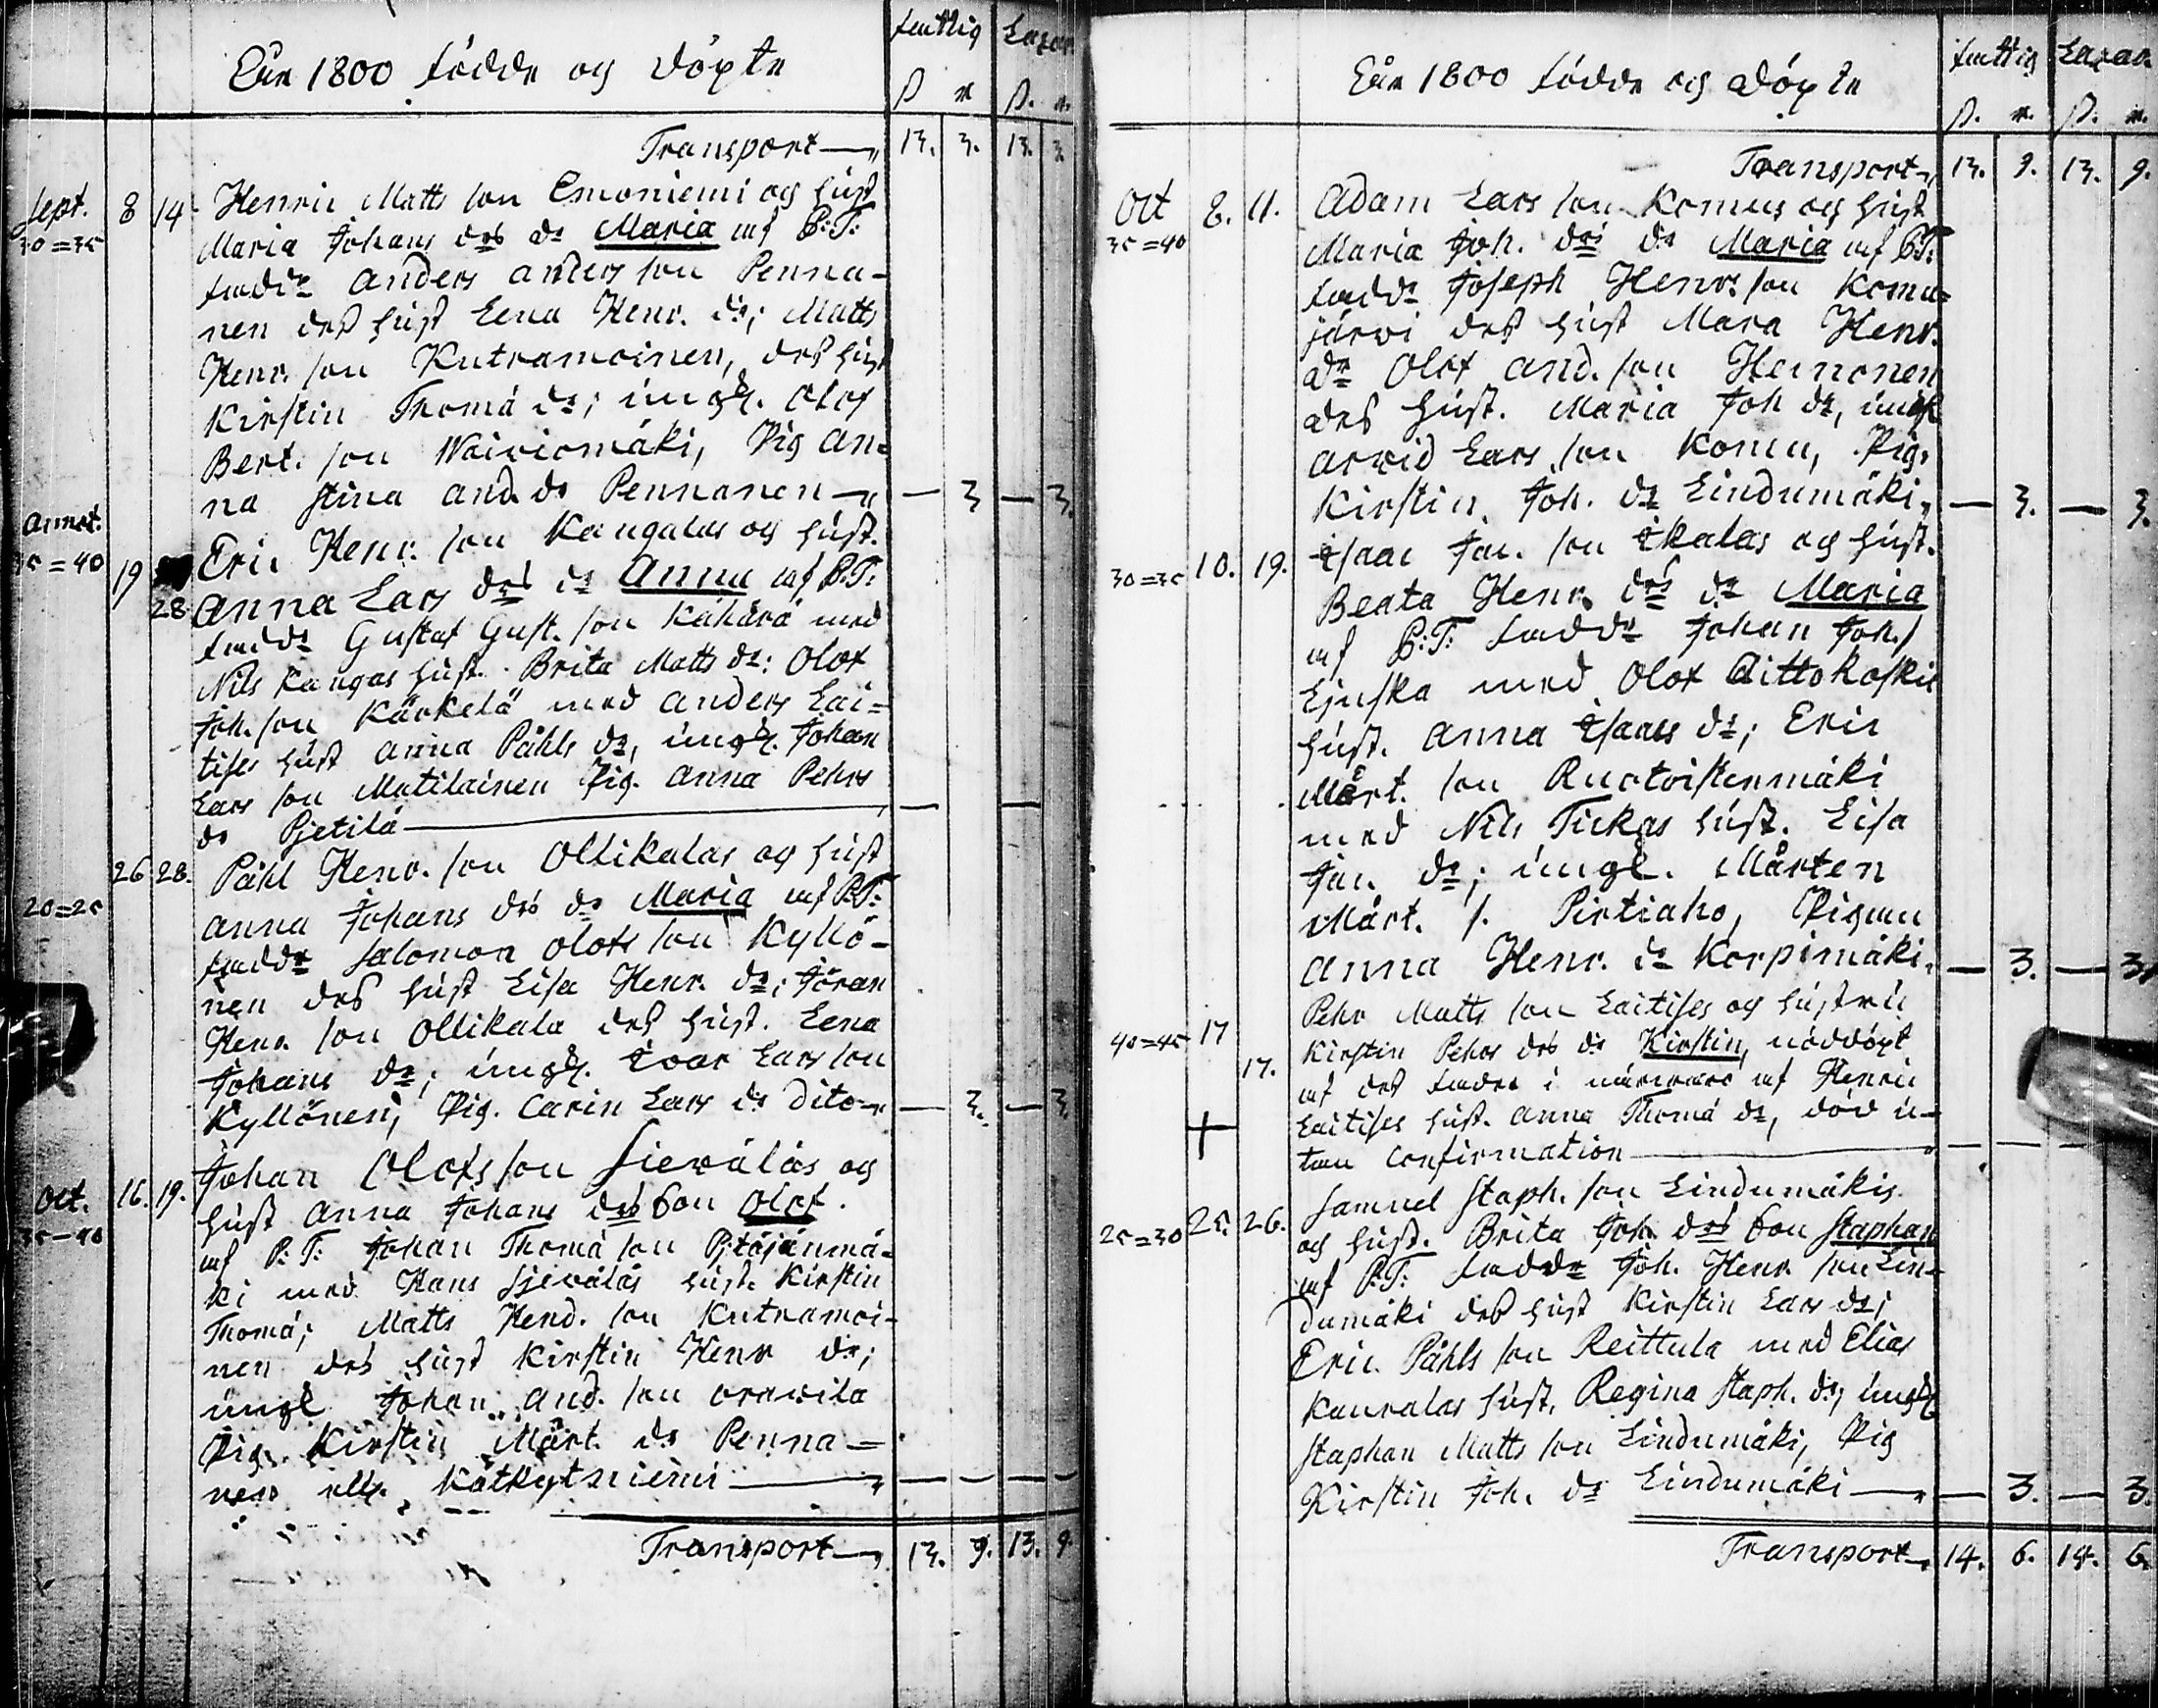 Åhr 1800 födde og döpte
fattig Lazar
ß r ß. r.
Transport 13. 3. 13. 3
Sept. 8 14 Henric Matts son Emoniemi og hust
30=35 Maria Johans des dr Maria af P:T:
fadd. Anders Anders son Penna-
nen des hust Lena Henr. dr; Matts
Henr. son Kutramoinen, des hust
Kirstin Thomä dr; ungk. Olof
Bert. son Waiviomäki, Pig An=
na Stina And. dr Pennanen — 3 — 3.
annot.
35=40 19 28 Eric Henr. son Kangalas og hust.
Anna Lars des dr Anna af P:T:
fadd. Gustaf Gust. son Kähärä med
Nils Kangas hust. Brita Matts dr: Olof
Joh. son Kärkelä med Anders Lai=
tises hust Anna Påhls dr, ungk. Johan
Lars son Matilainen Pig. Anna Pehrs
dr Pjetilä — —
26 28. Påhl Henr. son Ollikalas og hust
20=25 Anna Johans des dr Maria af P:T:
fadd. Salomon Olofs son Kyllö-
nen des hust Lisa Henr. dr; Jöran
Henr. son Ollikala des hust. Lena
Johans dr; ungk. Ivar Lars son
Kyllönen, Pig. Carin Lars dr dito — 3. — 3.
Oct. 16. 19. Johan Olofs son Sieväläs og
35-40 hust Anna Johans des son Olof.
af P:T: Johan Thomä son Pjtäjänmä-
ki med Hans Sjeväläs hust. Kirstin
Thomä; Matts Hend. son Kutramoi-
nen des hust Kirstin Henr dr;
ungk Johan And. son Oravila
Pig. Kirstin Mårt. dr Penna-
nen Kätkytniemi — — — —
Transport 13. 9. 13. 9.
Åhr 1800 födde og döpte
fattig Lazar.
ß. r. ß. r.
Transport 13. 9. 13. 9.
Oct 8. 11. Adam Lars son Komus og hust
35=40 Maria Joh. des dr Maria af P:T:
fadd. Joseph Henr. son Komu=
järvi des hust Mara Henr.
dr Olof And. son Heinonen
des hust. Maria Joh dr, ungk
Arvid Lars son Komu, Pig.
Kirstin Joh. dr Lindumäki — 3. — 3.
30=35 10. 19. Isaac Jac. son Ikalas og hust.
Beata Henr. des dr Maria
af P:T: fadd. Johan Joh. s
Ljuska med Olof Aittokoskis
hust. Anna Isaacs dr; Eric
Mårt. son Ruotoistenmäki
med Nils Tickas hust. Lisa
Jac. dr; ungk. Mårten
Mårt. s. Pirtiaho, Pigan
Anna Henr. dr Korpimäki. — 3. — 3.
40=45 17 17. Pehr Matts son Laitises og hustru
Kirstin Pehrs des dr Kirstin, nöddöpt
af des fader i närvaro af Henric
Laitises hust. Anna Thomä dr, död u-
tan Confirmation
25=30 25. 26. Samuel Staph. son Lindumäkis
og hust. Brita Joh. des son Staphan
af P:T: fadd. Joh. Henr. son Lin-
dumäki des hust Kirstin Lars dr;
Eric Påhls son Reittula med Elias
Kauralas hust. Regina Staph. dr; ungk
Staphan Matts son Lindumäki, Pig
Kirstin Joh. dr Lindumäki — 3. — 3.
Transport 14. 6. 14. 6.